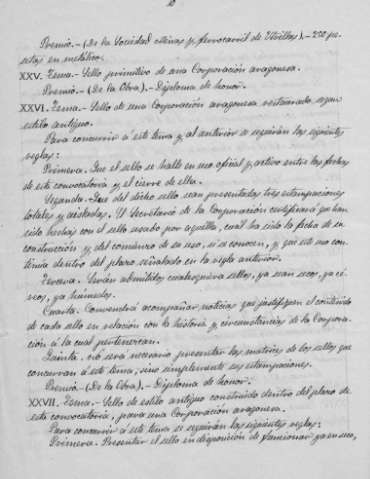 Premio.- (De la Sociedad Minas y Ferrocarril de Utrillas).- 250 pe-
setas en metálico.
XXV. Tema.- Sello primitivo de una Corporación aragonesa.
Premio.- (De la Obra).- Diploma de honor.
XXVI. Tema.- Sello de una Corporación aragonesa restaurado, según
estilo antiguo.
Para concurrir a este tema y al anterior se seguirán las siguientes
reglas:
Primera. Que el sello se halle en uso oficial y activo entre las fechas
de esta convocatoria y el cierre de ella.
Segunda. Que del dicho sello sean presentadas tres estampaciones
totales y aisladas. El Secretario de la Corporación certificará que han
sido hechas con el sello usado por aquella, cuál ha sido la fecha de su
construcción y del comienzo de su uso, si a conocen, y que este uso con-
tinúa dentro del plazo señalado en la regla anterior.
Tercera. Serán admitidos cualesquiera sellos, ya sean secos, ya
ya húmedos.
Cuarta. Convendrá acompañar noticias que justifiquen el contenido
de cada sello en relación con la historia y circunstancias de la Corpora-
ción a la cual pertenezcan.
Quinta. No será necesario presentar las matrices de los sellos que
concurran a este tema, sino simplemente sus estampaciones.
Premio.- (De la Obra).- Diploma de honor.
XXVII. Tema.- Sello de estilo antiguo construido dentro del plazo de
esta convocatoria, para una Corporación aragonesa.
Para concurrir a este tema se seguirán las siguientes reglas:
Primera. Presentar el sello en disposición de funcionar ya en seco,